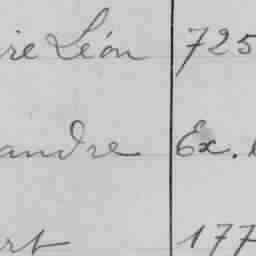 ire Léon 725
andre Ex.
ert 177